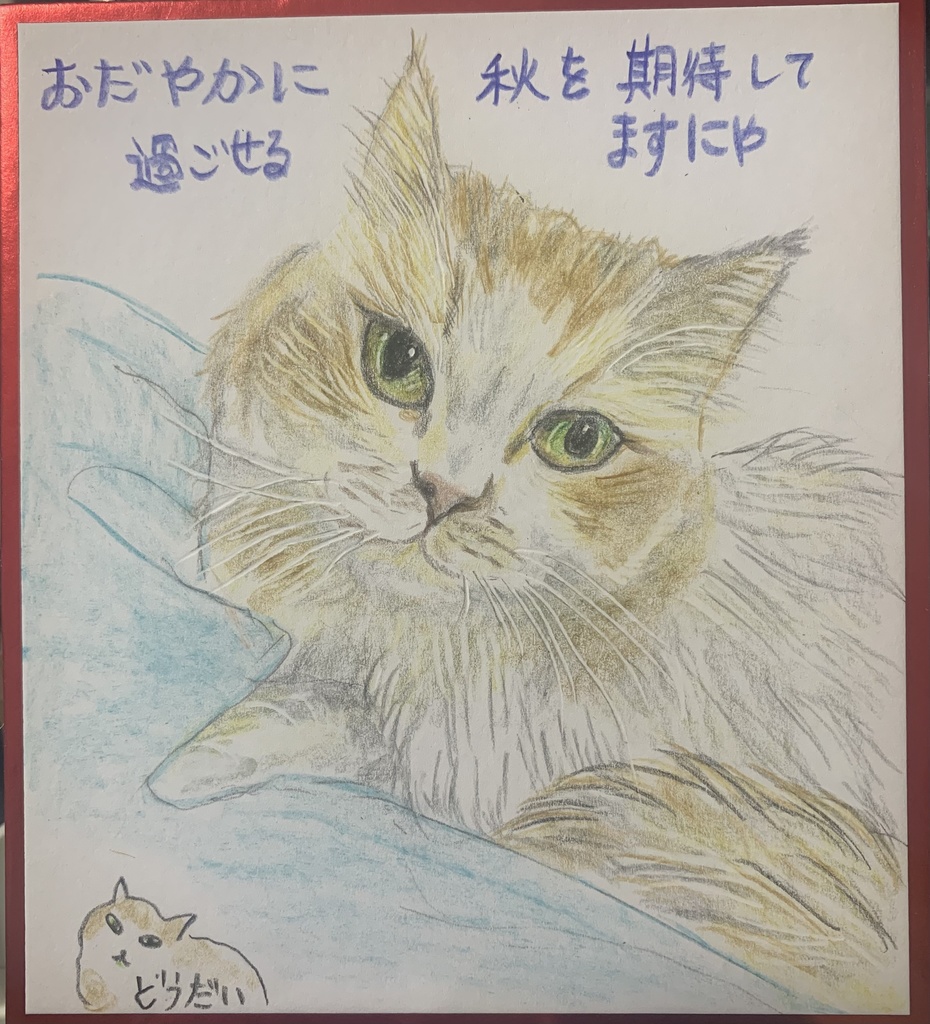 おだやかに
過ごせる
秋を期待して
ますにゃ
どうだい